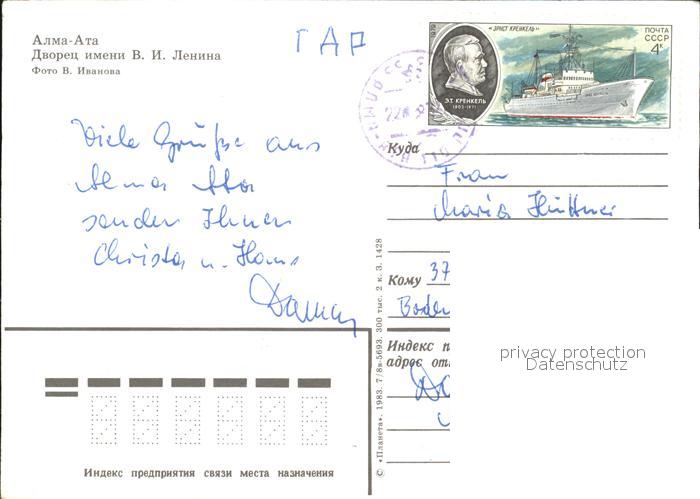 Алма-Ата
Дворец имени В. И. Ленина
Фото В. Иванова
ГДР
1979
"ЭРНСТ КРЕНКЕЛЬ"
ПОЧТА
СССР
4к
Э.Т. КРЕНКЕЛЬ
1903-1971
Viele Grüße aus
Alma Ata
senden Ihnen
Christa u. Hans
Куда
Frau
Maria Hüttner
Кому 37
Boden
Индекс п
адрес от
privacy protection
Datenschutz
© «Планета». 1983. 7/8в-5693. 300 тыс. 2 к. З. 1428
Индекс предприятия связи места назначения